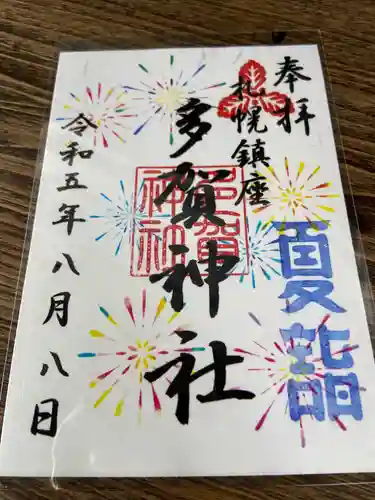 奉拝
札幌鎮座
夏詣
多賀神社
多賀
神社
令和五年八月八日